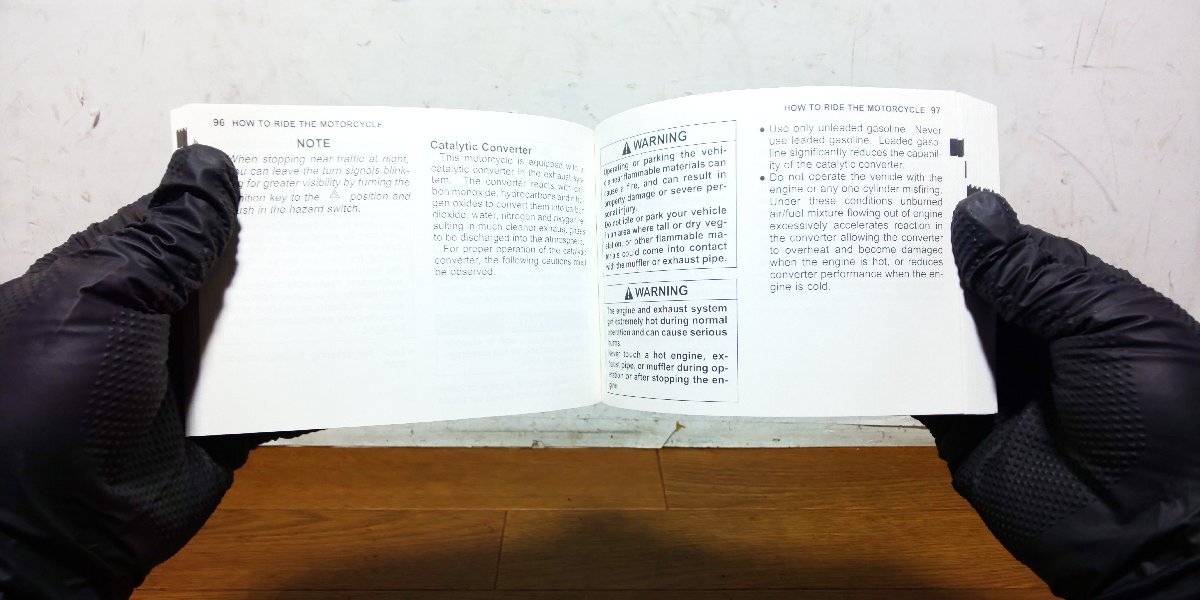 96 HOW TO RIDE THE MOTORCYCLE
NOTE
When stopping near traffic at night,
you can leave the turn signals blink-
for greater visibility by turning the
key to the ⚠ position and
push in the hazard switch.
Catalytic Converter
This motorcycle is equipped with a
catalytic converter in the exhaust sys-
tem. The converter reacts with car-
bon monoxide, hydrocarbons and nitro-
gen oxides to convert them into carbon
dioxide, water, nitrogen and oxygen re-
sulting in much cleaner exhaust gases
to be discharged into the atmosphere.
For proper operation of the catalytic
converter, the following cautions must
be observed.
⚠ WARNING
Operating or parking the vehi-
cle near flammable materials can
cause a fire, and can result in
property damage or severe per-
sonal injury.
Do not idle or park your vehicle
in an area where tall or dry veg-
etation, or other flammable ma-
terials could come into contact
with the muffler or exhaust pipe.
⚠ WARNING
The engine and exhaust system
get extremely hot during normal
operation and can cause serious
burns.
Never touch a hot engine, ex-
haust pipe, or muffler during op-
eration or after stopping the en-
gine.
HOW TO RIDE THE MOTORCYCLE 97
● Use only unleaded gasoline. Never
use leaded gasoline. Leaded gaso-
line significantly reduces the capabil-
ity of the catalytic converter.
● Do not operate the vehicle with the
engine or any one cylinder misfiring.
Under these conditions unburned
air/fuel mixture flowing out of engine
excessively accelerates reaction in
the converter allowing the converter
to overheat and become damaged
when the engine is hot, or reduces
converter performance when the en-
gine is cold.